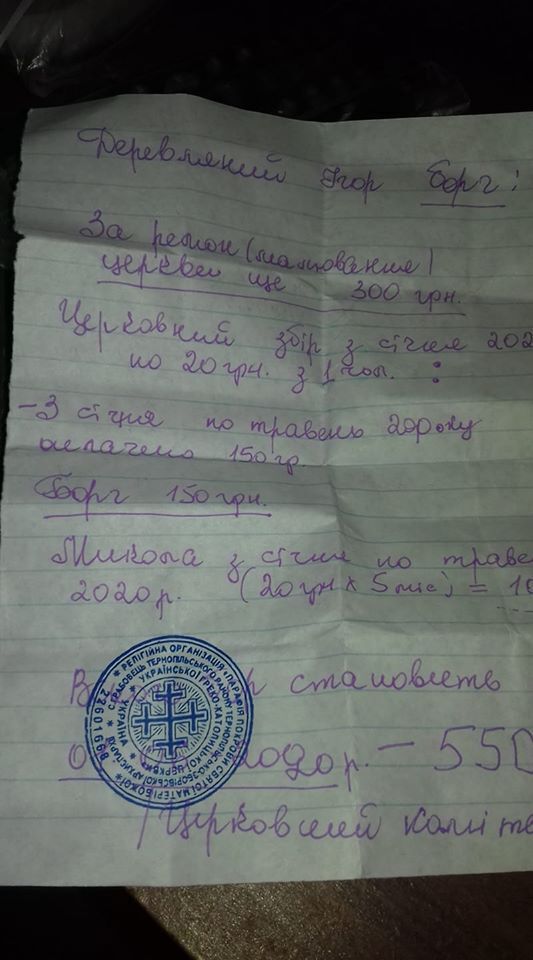 Деревляний Ігор Борг:
За ремон (малювання)
церкви ще 300 грн.
Церковний збір з січня 202
по 20 грн. з 1 чол. :
- З січня по травень 20року
оплачено 150 гр.
Борг 150 грн.
Микола з січня по траве
2020р. (20 грн x 5 міс) = 10
становить
2020 р. - 550
Церковний коміте
РЕЛІГІЙНА ОРГАНІЗАЦІЯ «ПАРАФІЯ ПОКРОВИ СВЯТОЇ МАТЕРІ БОЖОЇ
ТЕРНОПІЛЬСЬКОГО РАЙОНУ
ТЕРНОПІЛЬСЬКО-ЗБОРІВСЬКОЇ
УКРАЇНСЬКОЇ ГРЕКО-КАТОЛИЦЬКОЇ ЦЕРКВИ»
УКРАЇНА